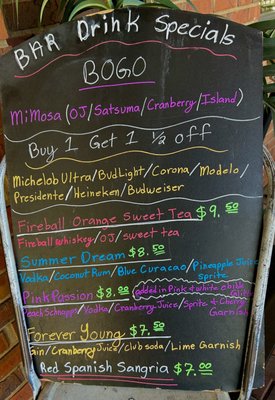 BAR Drink Specials
BOGO
MiMosa (OJ/Satsuma/Cranberry/Island)
Buy 1 Get 1 ½ off
Michelob Ultra/Bud Light/Corona/Modelo/
Presidente/Heineken/Budweiser
Fireball Orange Sweet Tea $9.50
Fireball whiskey/OJ/sweet tea
Summer Dream $8.50
Vodka/Coconut Rum/Blue Curacao/Pineapple Juice
Sprite
Pink Passion $8.00 added in Pink & white edible
Peach Schnapps/Vodka/Cranberry Juice/Sprite & Cherry
Garnish
Forever Young $7.50
Cranberry Juice/Club soda/Lime Garnish
Red Spanish Sangria $7.00